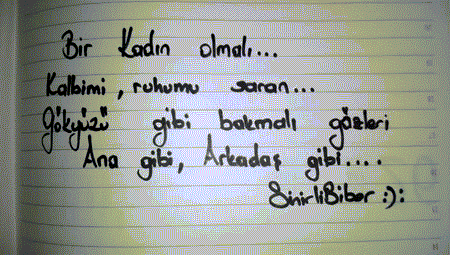 Bir Kadın olmalı...
Kalbimi, ruhumu saran...
Gökyüzü gibi bakmalı gözleri
Ana gibi, Arkadaş gibi....
SinirliBiber :):